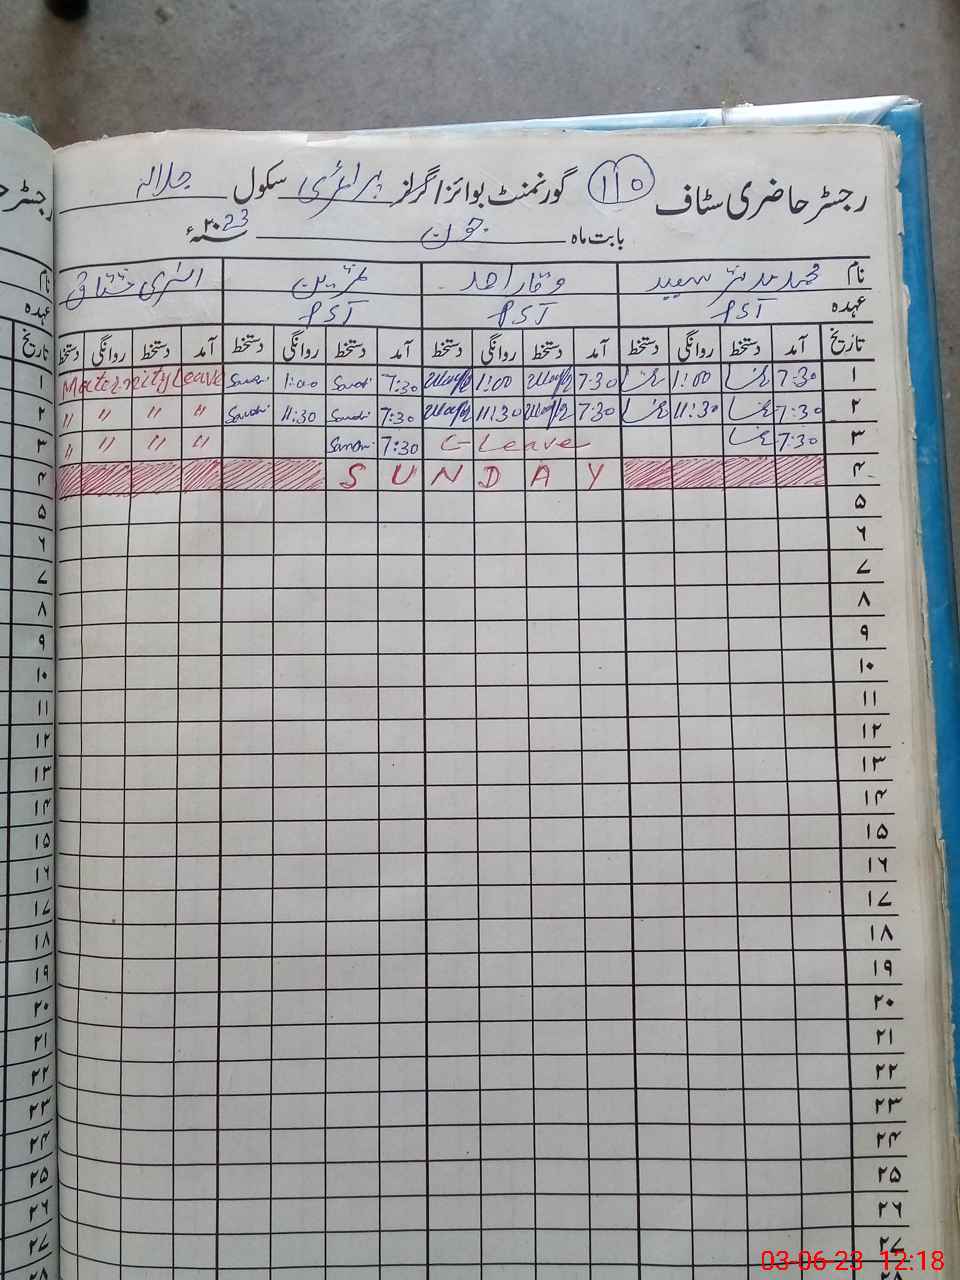 رجسٹر حاضری سٹاف 110 گورنمنٹ بوائز / گرلز پرائمری سکول جلالہ
بابت ماہ جون سنہ 2023ء
نام محمد مدثر سعید وقار احمد ثمرین
عہدہ PST PST PST
تاریخ آمد دستخط روانگی دستخط آمد دستخط روانگی دستخط آمد دستخط روانگی دستخط آمد دستخط روانگی دستخط
۱ 7:30 1:00 7:30 1:00 7:30 1:00 Maternity Leave
۲ 7:30 11:30 7:30 11:30 7:30 11:30 〃 〃 〃 〃
۳ 7:30 C-Leave 7:30 〃 〃 〃 〃
۴ SUNDAY
۵
۶
۷
۸
۹
۱۰
۱۱
۱۲
۱۳
۱۴
۱۵
۱۶
۱۷
۱۸
۱۹
۲۰
۲۱
۲۲
۲۳
۲۴
۲۵
۲۶
۲۷
رجسٹر
عہدہ
تاریخ
۱
۲
۳
۴
۵
۶
۷
۸
۹
۱۰
۱۱
۱۲
۱۳
۱۴
۱۵
۱۶
۱۷
۱۸
۱۹
۲۰
۲۱
۲۲
۲۳
۲۴
۲۵
۲۶
۲۷
03-06-23 12:18